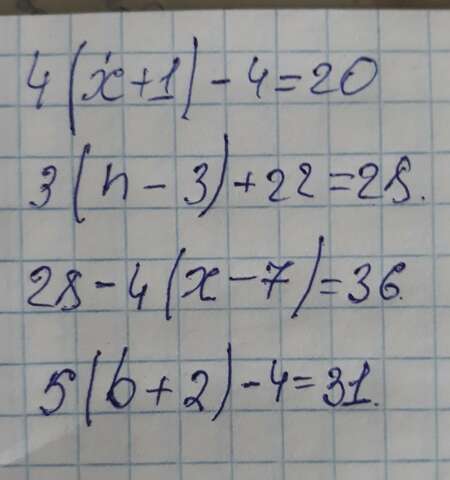 4(x+1)-4=20
3(n-3)+22=28.
28-4(x-7)=36.
5(b+2)-4=31.